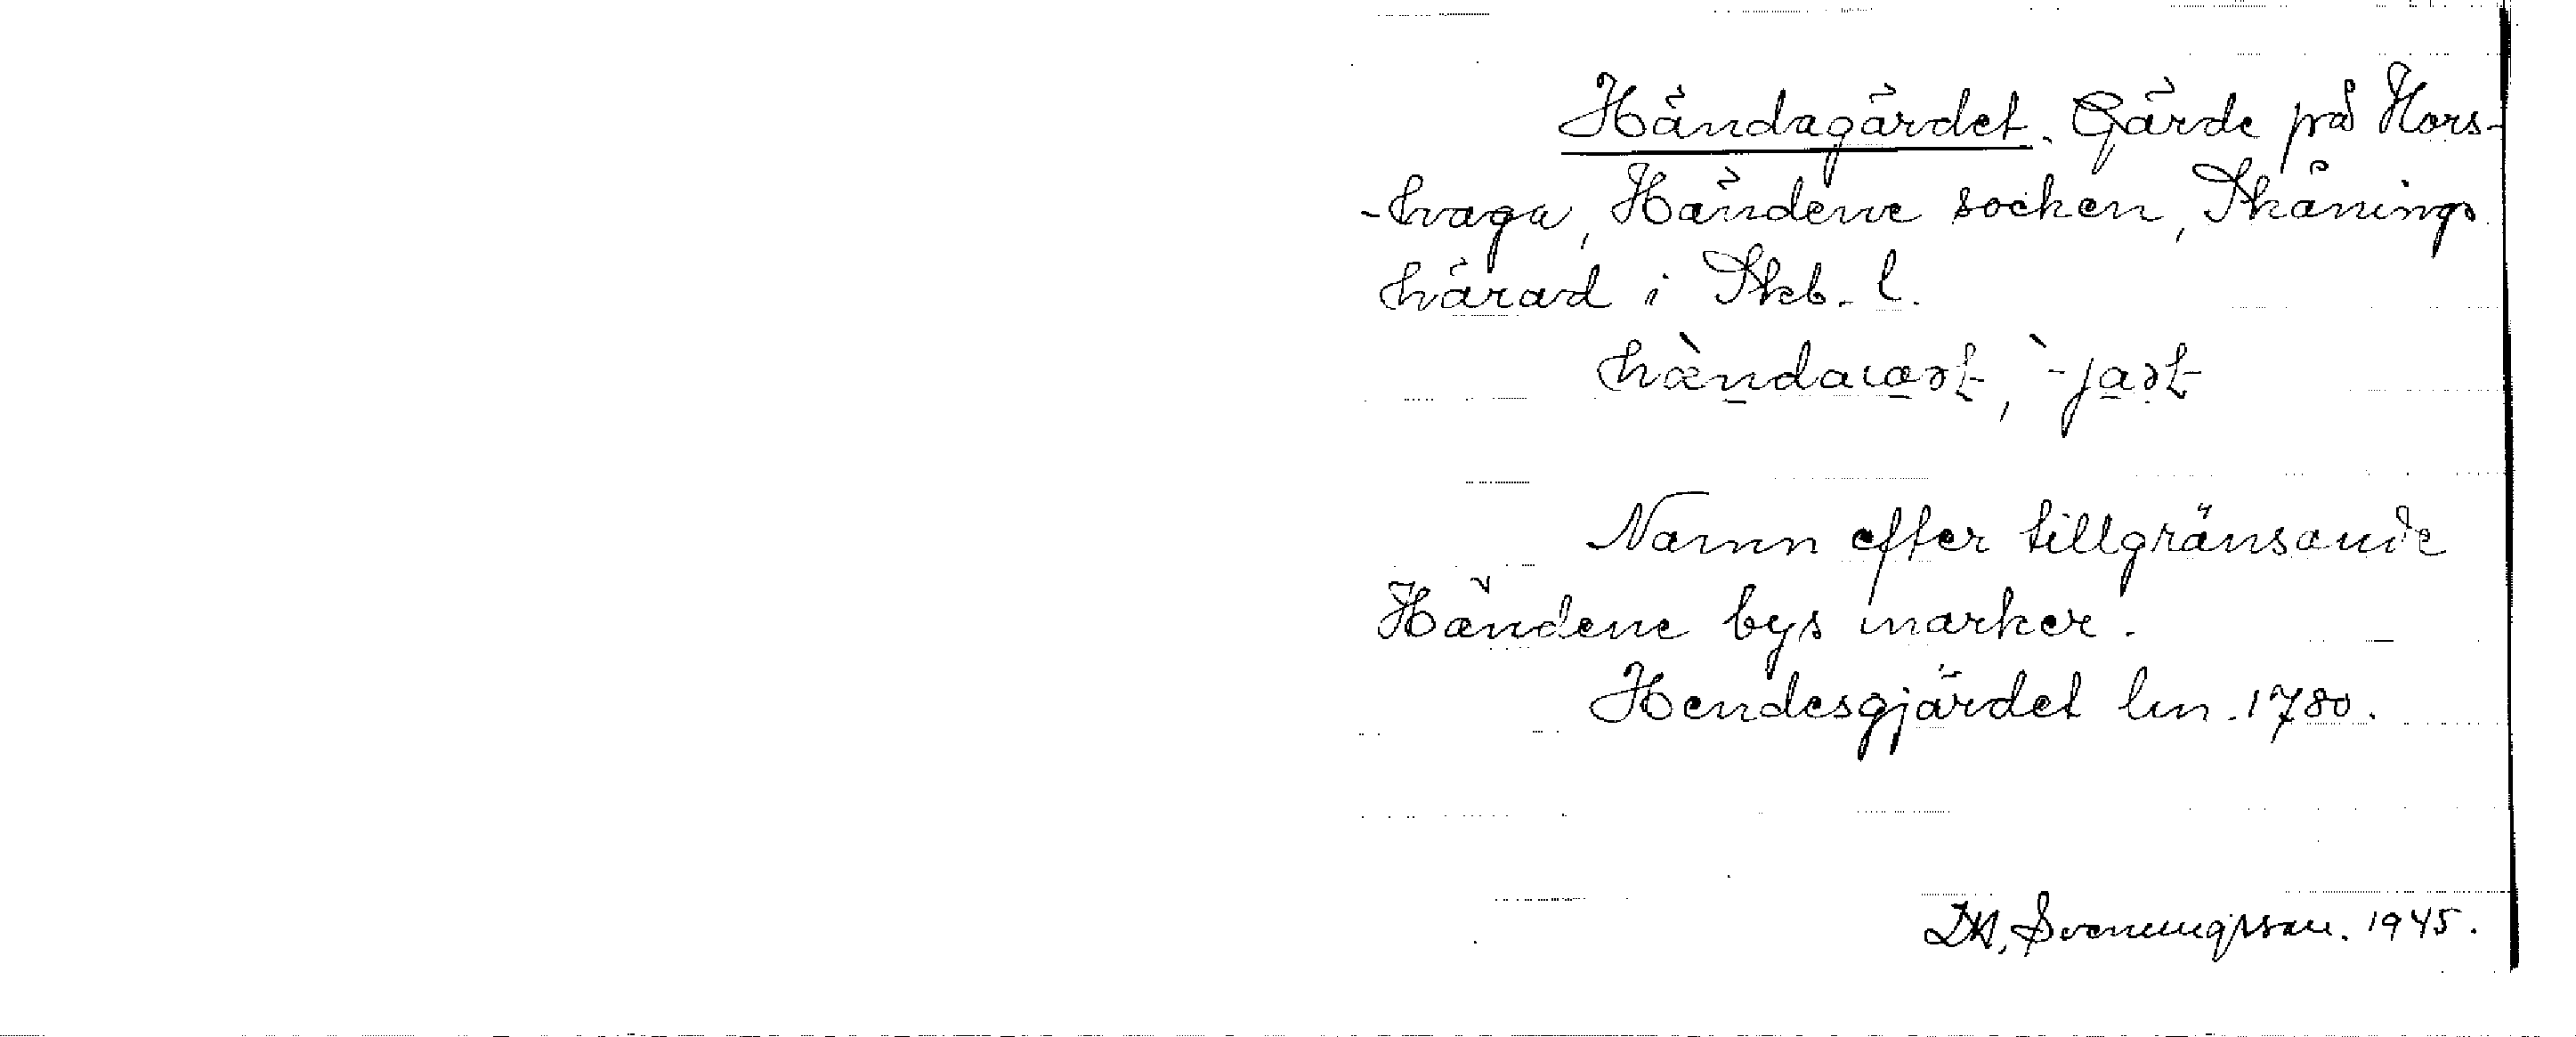 Händagärdet. Gärde på Hors-
-haga, Händene socken, Skånings
härad i Skb. l.
Namn efter tillgränsande
Händene bys marker.
Hendesgjärdet lm. 1780.
Svenungsson. 1945.